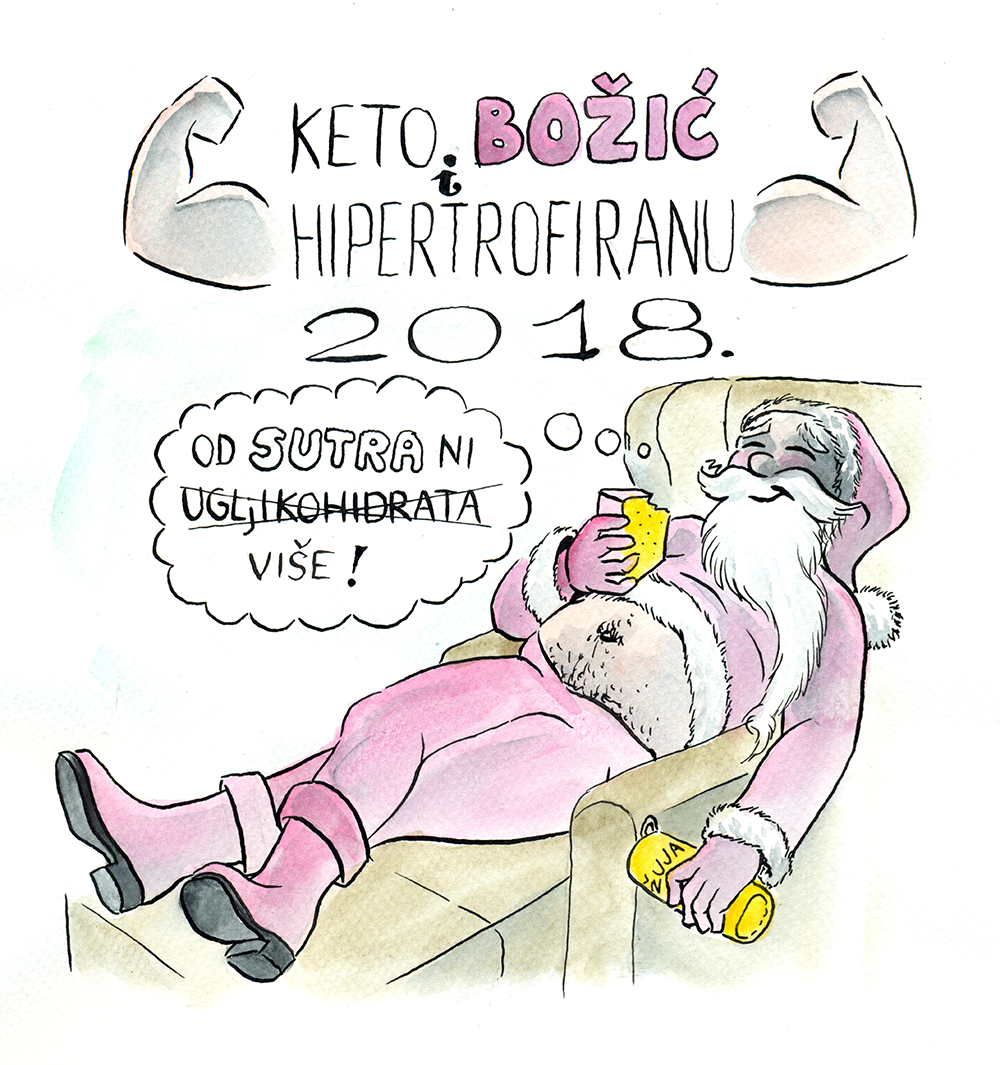 KETO BOŽIĆ
i
HIPERTROFIRANU
2018.
OD SUTRA NI
UGLJIKOHIDRATA
VIŠE!
ŽUJA